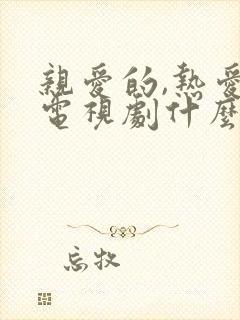 親愛的,熱愛
電視劇什麼
忘牧